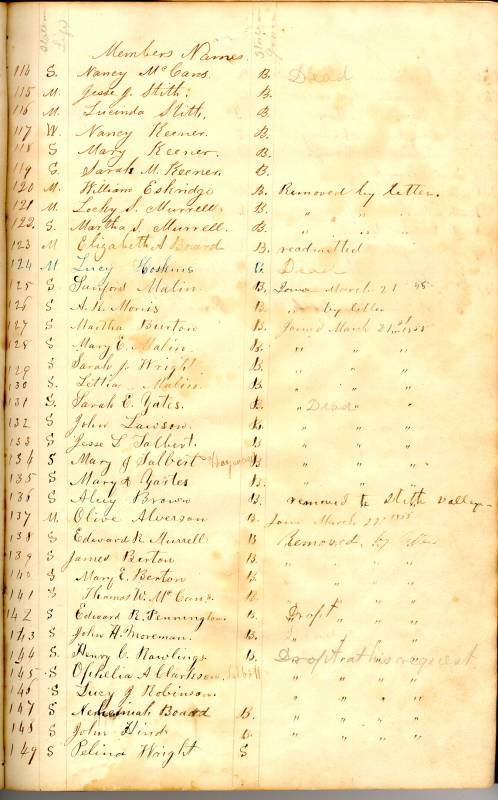 Members Names.
114 S. Nancy McCans. B. Dead
115 M. Jesse J. Stith. B.
116 M. Lucinda Stith. B.
117 W. Nancy Keener. B.
118 S Mary Keener. B.
119 S. Sarah M. Keener. B.
120 M. William Eskridge B. Removed by letter.
121 M. Locky S. Murrell. B. " " "
122. S. Martha S. Murrell. B. " " "
123 M Elizabeth A Board B. readmitted
124 M Lucy Hoskins B Dead
125 S Sanford Malin. B. March 21
126 S A. R. Morris B. " by letter
127 S Martha Burton B. Joined March 21st 1855
128 S Mary E. Malin. B. " " "
129 S Sarah J. Wright. B. " " "
130 S. Lettia Malin. B. " " "
131 S. Sarah E. Yates. B. " Dead " "
132 S John Lawson. B. " " "
133 S Jesse L Talbert. B " " "
134 S Mary J Talbert B " " "
135 S Mary A Yartes B. " " "
136 S Aley Brown B. removed to Stith valley
137 M Olive Alverson B Join March 22nd 1855
138 S Edward R Murrell B Removed by letter
139 S James Berton B. " " " "
140 S Mary E. Berton B " " " "
141 S Thomas W. McCans B " " " "
142 S Edward R. Pennington. B. Dropt " "
143 S John H. Moreman. B. " " "
144 S. Henry C. Rawlings B. Dropt at his request
145 S Ophelia A Clarkson. " " " "
146 S Lucy J Robinson. " " " "
147 S Nehemiah Board B. " " " "
148 S John Hinds B " " " "
149 S Pelina Wright S